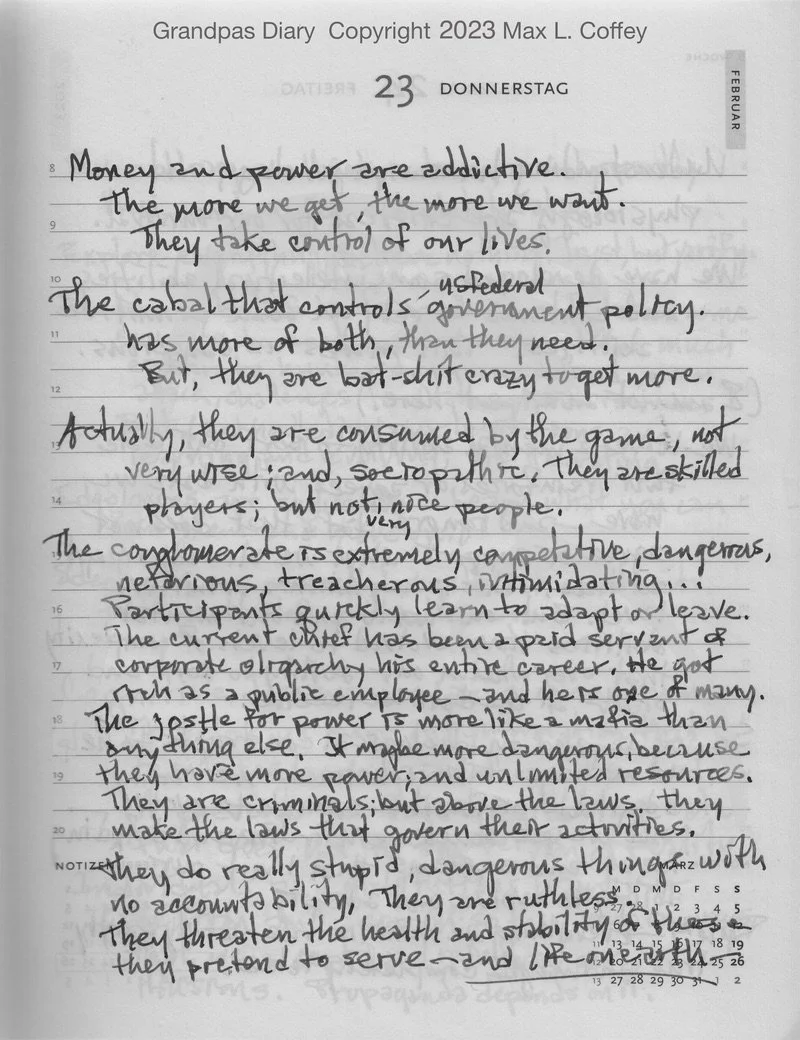 Grandpas Diary Copyright 2023 Max L. Coffey
23 DONNERSTAG
FEBRUAR
8 Money and power are addictive.
The more we get, the more we want.
9 They take control of our lives.
10 US Federal
The cabal that controls government policy.
11 has more of both, than they need.
But, they are bat-shit crazy to get more.
12
Actually, they are consumed by the game, not
13 very wise; and, sociopathic. They are skilled
14 players; but not, nice people.
very
The conglomerate is extremely competative, dangerous,
nefarious, treacherous, intimidating...
16 Participants quickly learn to adapt or leave.
The current chief has been a paid servant of
17 corporate oligarchy his entire career. He got
rich as a public employee – and he is one of many.
18 The jostle for power is more like a mafia than
anything else. It maybe more dangerous, because
19 they have more power; and unlimited resources.
They are criminals; but above the laws. They
20 make the laws that govern their activities.
NOTIZEN They do really stupid, dangerous things with
MÄRZ
no accountability. They are ruthless.
They threaten the health and stability of those
they pretend to serve – and life on earth –
M D M D F S S
9 27 28 1 2 3 4 5
11 13 14 15 16 17 18 19
20 21 22 23 24 25 26
13 27 28 29 30 31 1 2